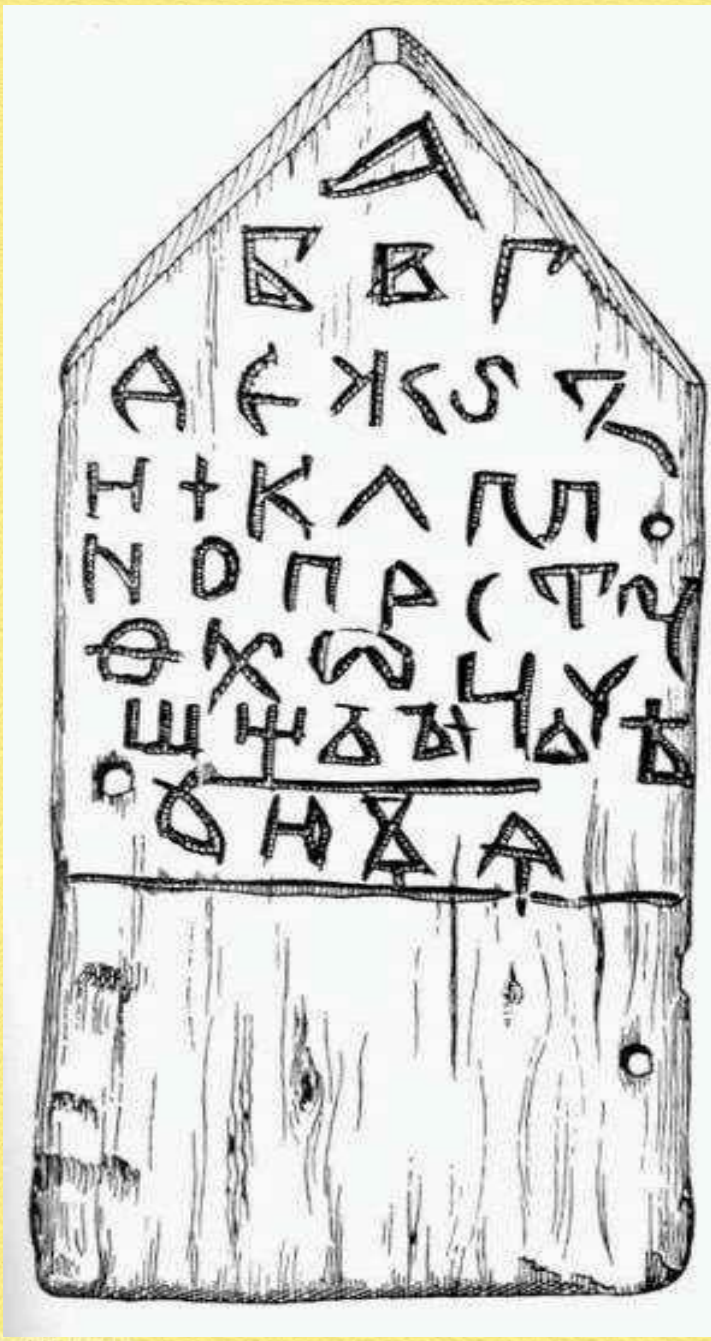 А
Б В Г
Д Є Ж Ѕ З
И І К Л М
N О П Р С Т У
Ф Х Ѡ Ц Ч
Ш Щ Ъ ЪІ Ь Ѣ
Ѫ Ѧ